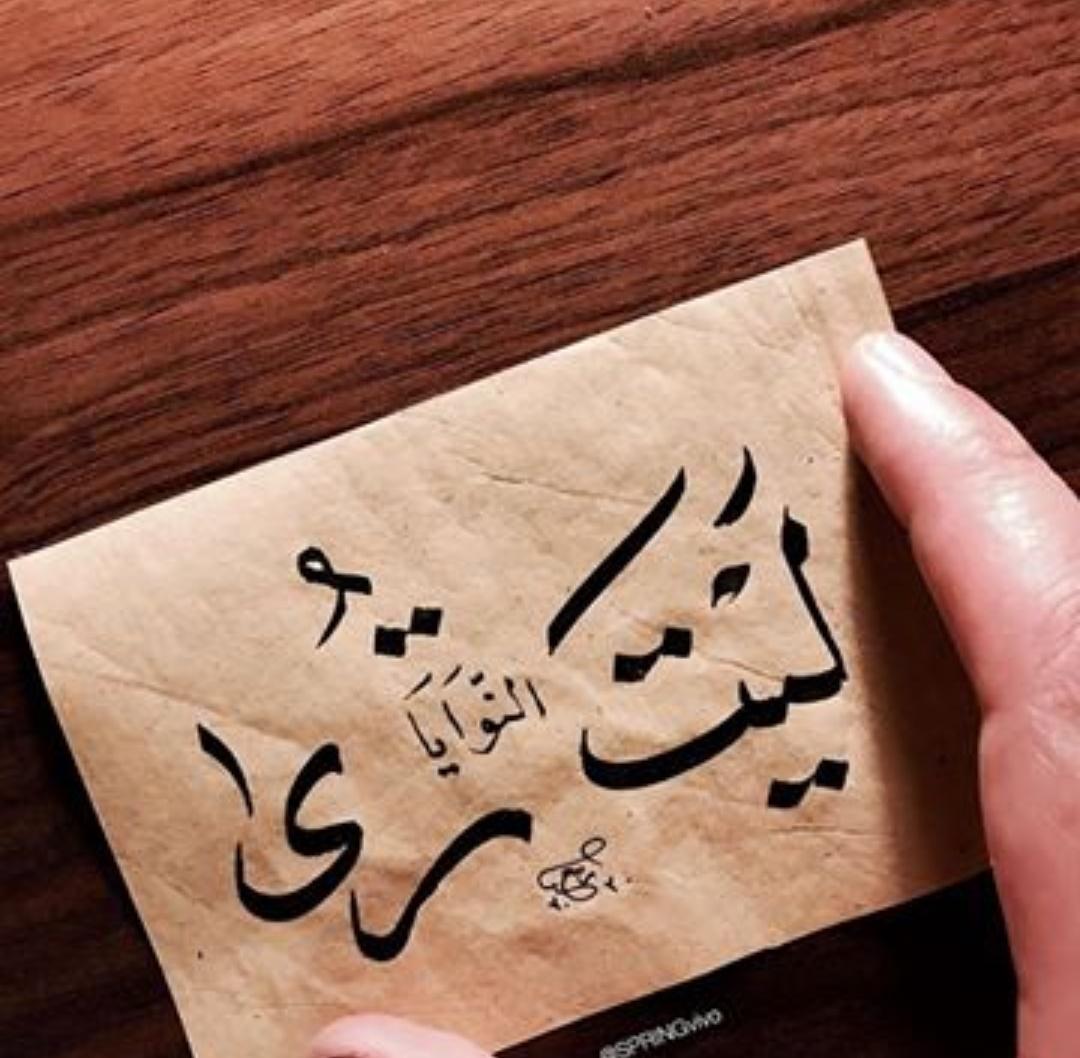 لَيْتَ النَّوَايَا تُرى
@SPRINGvivo